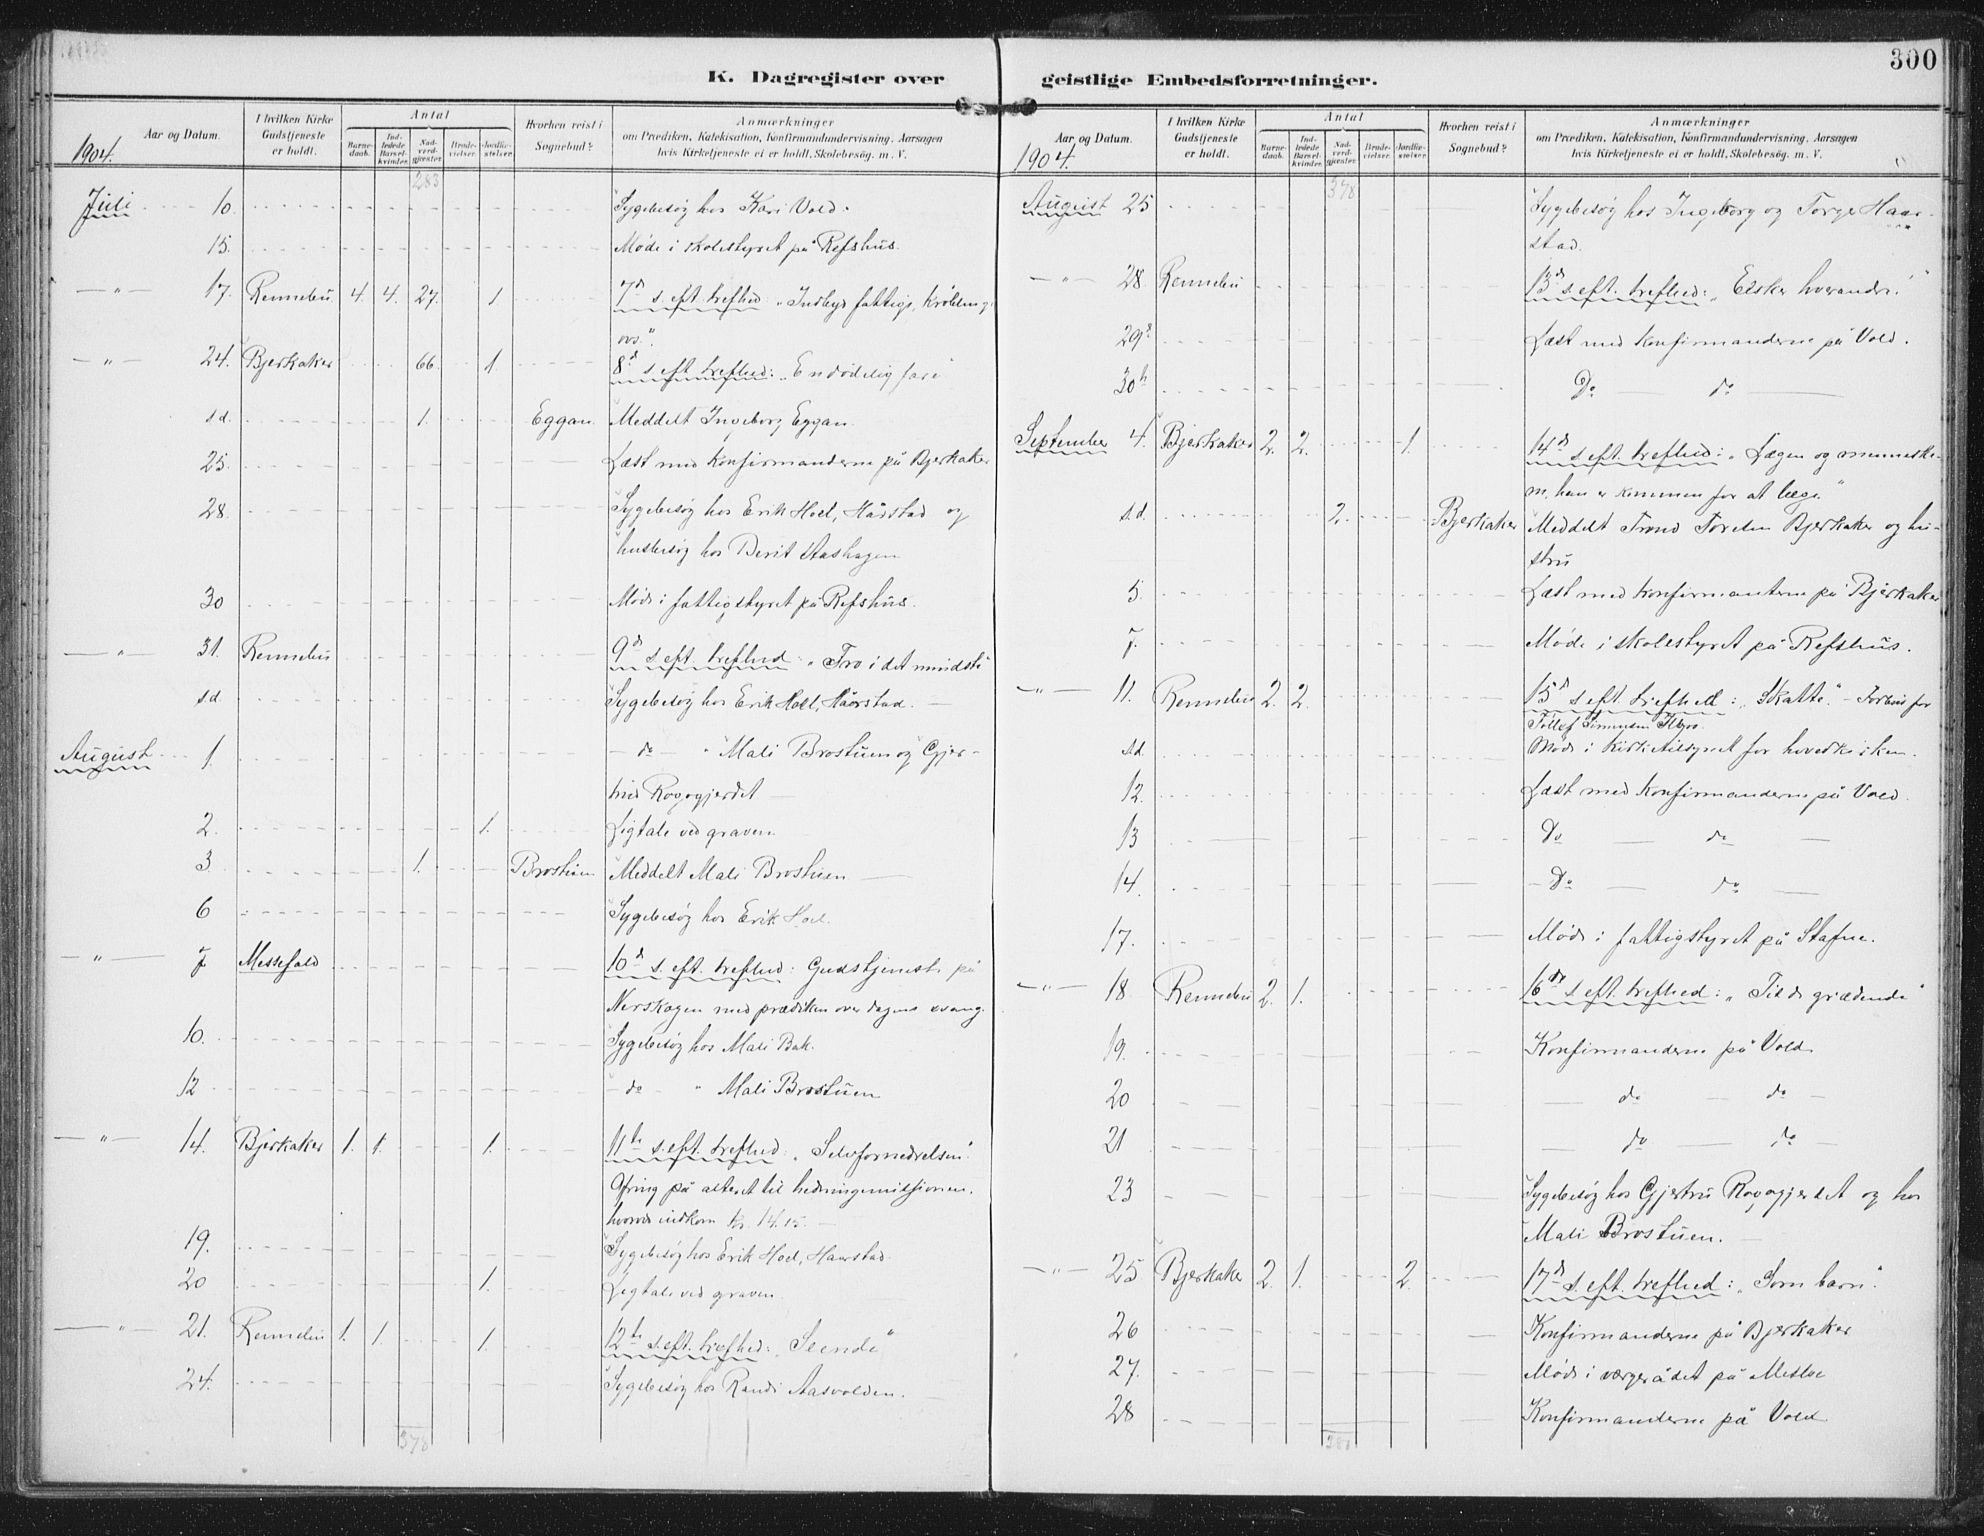 300
K. Dagregister over geistlige Embedsforretninger.
Aar og Datum. I hvilken Kirke Gudstjeneste er holdt. Antal Barnedaab. Indledede Barselkvinder. Nadverdgjæster. Brudevielser. Jordfæstelser. Hvorhen reist i Sognebud? Anmærkninger om Prædiken, Katekisation, Konfirmandundervisning, Aarsagen hvis Kirketjeneste ei er holdt, Skolebesøg, m. V.
1904.
283
Juli 10. Sygebesøg hos Kari Vold.
15. Møde i skolestyret på Refshus.
—„— 17. Rennebu 4. 4. 27. 1 7d s. eft. trefhed „Indbyd fattige, krøblinge
osv."
—„— 24. Bjerkaker 66. 1 8d s. eft. trefhed: „En dødelig fare"
s.d. 1. Eggan Meddelt Ingeborg Eggan.
25. Læst med konfirmanderne på Bjerkaker
28. Sygebesøg hos Erik Hoel, Hårstad og
husbesøg hos Berit Aashagen
30 Møde i fattigstyret på Refshus.
—„— 31. Rennebu 9d s. eft. trefhed: „Tro i det mindste"
s.d. Sygebesøg hos Erik Hoel, Haarstad. —
August 1. — do — „ Mali Brostuen og Gjer-
trud Rogogjerdet —
2. 1. Ligtale ved graven
3. 1. Brostuen Meddelt Mali Brostuen —
6 Sygebesøg hos Erik Hoel.
—„— 7. Messefald 10d s. eft. trefhed: Gudstjeneste på
Nerskogen med prædiken over dagens evang.
10. Sygebesøg hos Mali Bak.
12 — do — „ Mali Brostuen
—„— 14. Bjerkaker 1. 1. 1. 11te s. eft. trefhed: „Selvfornedrelsen".
Ofring på alteret til hedningemissionen,
hvorved indkom kr. 14.15. —
19. Sygebesøg hos Erik Hoel, Haarstad
20 1. Ligtale ved graven
—„— 21. Rennebu 1. 1. 1. 12te s. eft. trefhed: „Seende"
24. Sygebesøg hos Randi Aasvolden.
378
Aar og Datum. I hvilken Kirke Gudstjeneste er holdt. Antal Barnedaab. Indledede Barselkvinder. Nadverdgjæster. Brudevielser. Jordfæstelser. Hvorhen reist i Sognebud? Anmærkninger om Prædiken, Katekisation, Konfirmandundervisning, Aarsagen hvis Kirketjeneste ei er holdt, Skolebesøg, m. V.
1904.
378
August 25 Sygebesøg hos Ingeborg og Torger Haar-
stad.
—„— 28. Rennebu 13d s. eft. trefhed: „Elsker hverandre!"
29d Læst med konfirmanderne på Vold.
30te Do — do —
September 4. Bjerkaker 2. 2. 1. 14d s. eft. trefhed: „Lægen og menneske-
n, han er kommen for at læge."
s.d. 2. Bjerkaker Meddelt Trond Bjerkaker og hu-
stru
5. Læst med konfirmanterne på Bjerkaker
7. Møde i skolestyret på Refshus.
—„— 11. Rennebu 2. 2. 15d s. eft. trefhed: „Skatte". — Forbøn for
Tollef
s.d. Møde i kirketilsynet for hovedkirken.
12. Læst med konfirmanderne på Vold.
13 Do — do —
14. — Do — do —
17. Møde i fattigstyret på Stafne.
—„— 18. Rennebu 2. 1. 16de s. eft. trefhed: „Til de grædende"
19. Konfirmanderne på Vold
20 — do — do —
21 do — do —
23 Sygebesøg hos Gjertru Rogogjerdet og hos
Mali Brostuen. —
—„— 25 Bjerkaker 2. 1. 2. 17d s. eft. trefhed: „Som barn".
26 Konfirmanderne på Bjerkaker
27. Møde i værgerådet på Meslo
28 Konfirmanderne på Vold
380